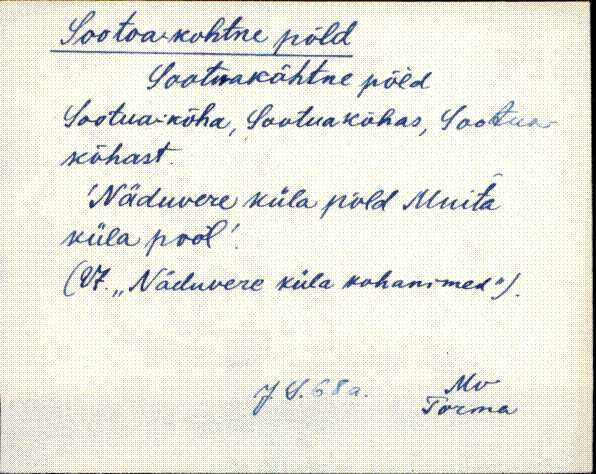 Sootoa-kohtne põld
Sootuakõhtne põld
Sootua-kõha, Sootuakõhas, Sootua-
kõhast.
'Näduvere küla põld Muita
küla pool'.
(Vt. „Näduvere küla kohanimed").
J S. 68a. Mv
Torma